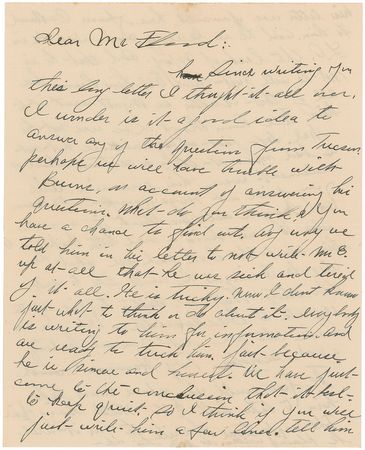 Dear Mr Flood:
Since writing you
this long letter I thought it all over.
I wonder is it a good idea to
answer any of the questions from Tucson
perhaps we will have trouble with
Burns, on account of answering his
questions. What do you think. You
have a chance to find out. Any way we
told him in his letter to not with Mr. B.
up at all that he was sick and tired
of it all. He is tricky. now I dont know
just what to think or do about it. everybody
is writing to him for information. and
are ready to trick him. just because
he is sincere and honest. We have just
come to the conclusion that its best
to keep quiet. so I think if you will
just write him a few lines. tell him